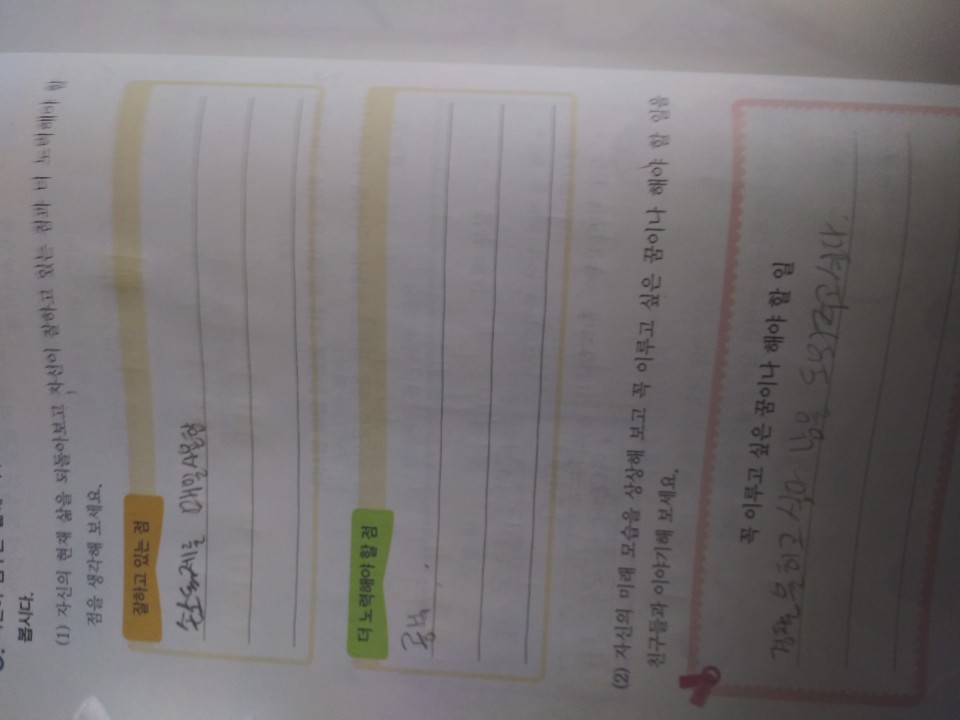 봅시다.
(1) 자신의 현재 삶을 되돌아보고 자신이 잘하고 있는 점과 더 노력해야 할
점을 생각해 보세요.
잘하고 있는 점
손소독제를 매일사용함
더 노력해야 할 점
공부
(2) 자신의 미래 모습을 상상해 보고 꼭 이루고 싶은 꿈이나 해야 할 일을
친구들과 이야기해 보세요.
꼭 이루고 싶은 꿈이나 해야 할 일
경찰 을하고 싶다